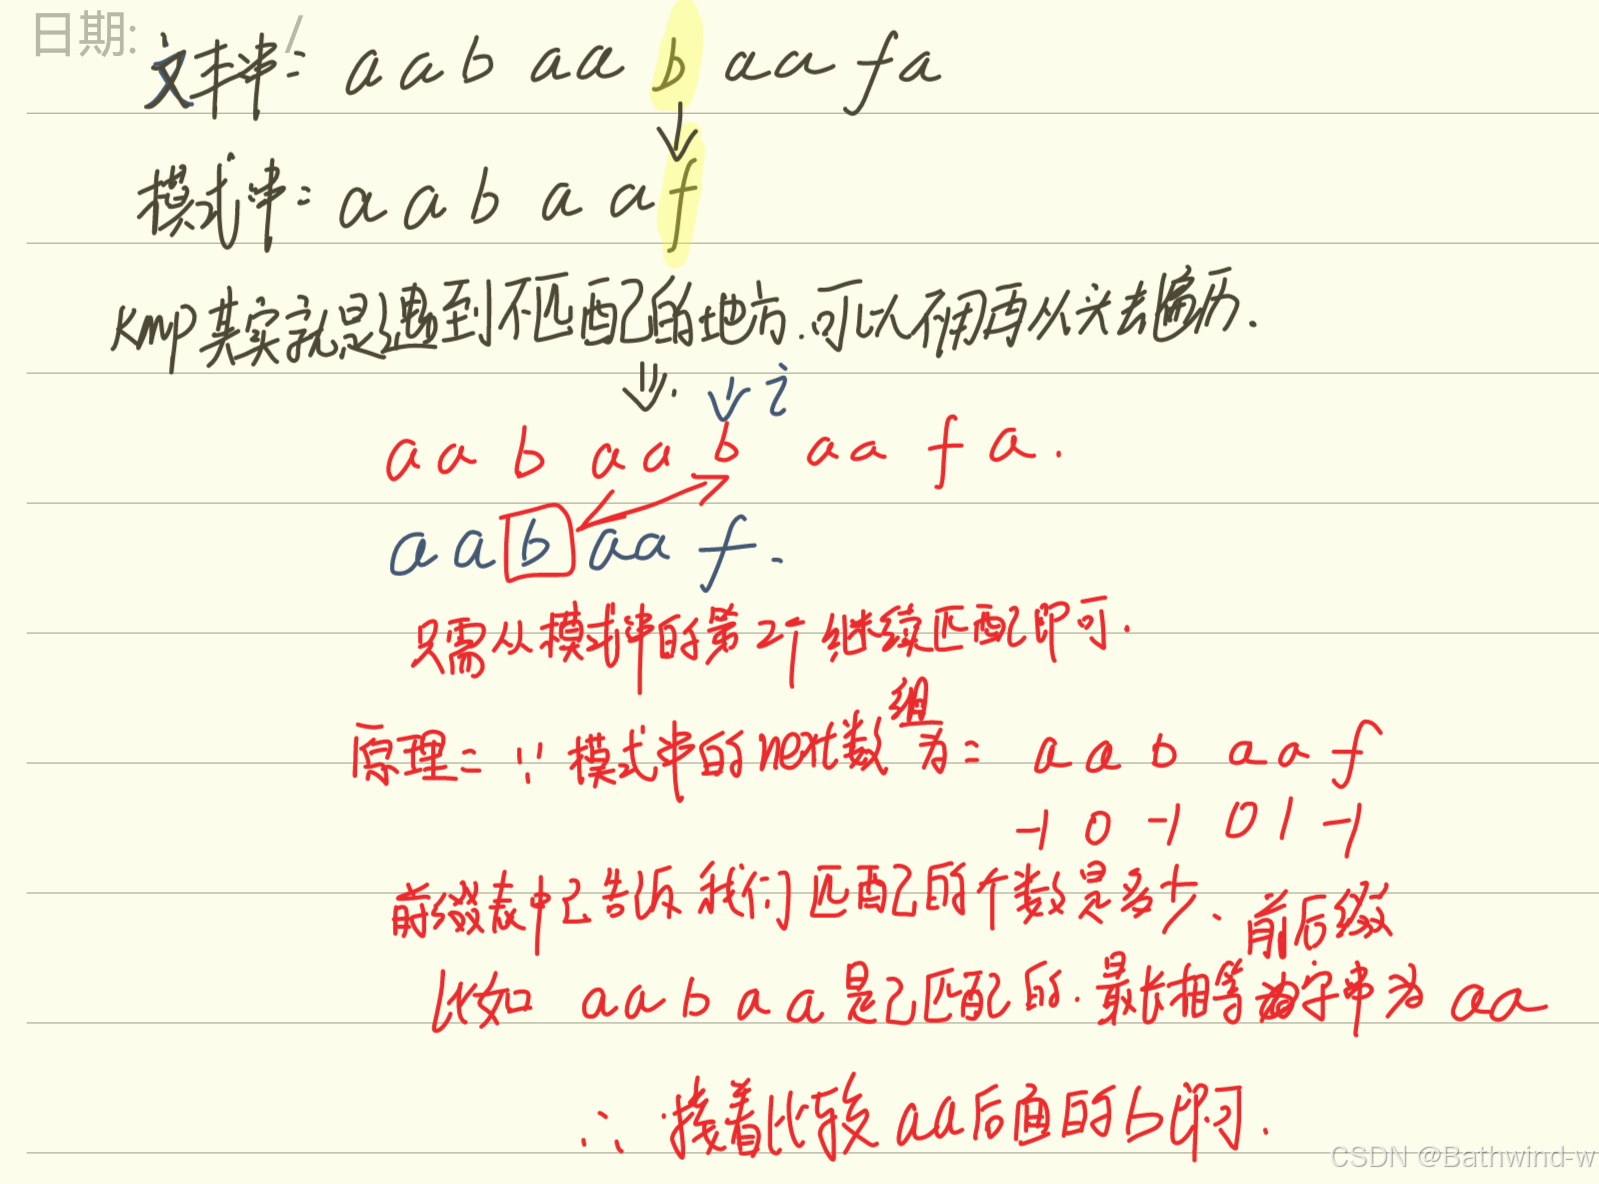 日期: /
文本串: a a b a a b a a f a
模式串: a a b a a f
Kmp其实就是遇到不匹配的地方.可以不用再从头去遍历.
i
a a b a a b a a f a.
a a b a a f.
只需从模式串的第2个继续匹配即可.
原理: ∵ 模式串的next数组为: a a b a a f
-1 0 -1 0 1 -1
前缀表中已告诉我们匹配的个数是多少.
比如 a a b a a 是已匹配的.最长相等前后缀字串为 aa
∴ 接着比较 aa后面的b即可.
CSDN @Bathwind-w